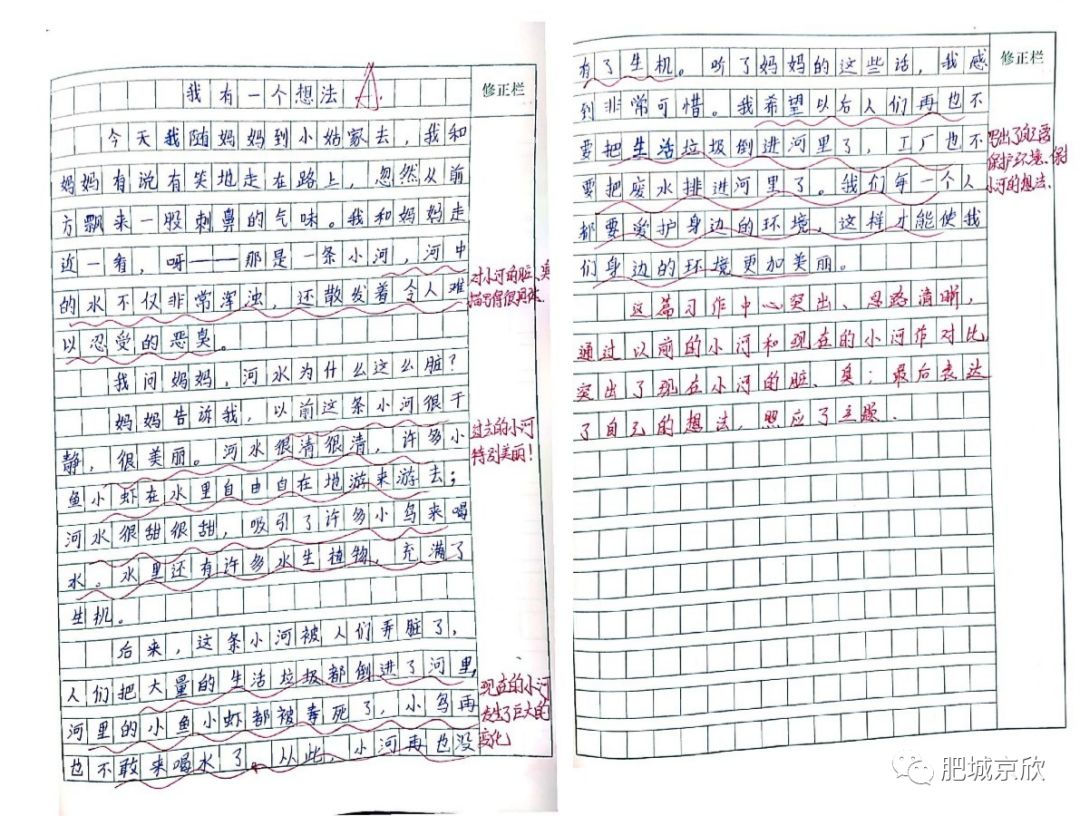 我有一个想法 A.
修正栏
今天我随妈妈到小姑家去,我和
妈妈有说有笑地走在路上,忽然从前
方飘来一股刺鼻的气味。我和妈妈走
近一看,呀——那是一条小河,河中
的水不仅非常浑浊,还散发着令人难
以忍受的恶臭。
对小河的脏、臭
描写得很具体.
我问妈妈,河水为什么这么脏?
妈妈告诉我,以前这条小河很干
静,很美丽。河水很清很清,许多小
鱼小虾在水里自由自在地游来游去;
河水很甜很甜,吸引了许多小鸟来喝
水。水里还有许多水生植物,充满了
生机。
过去的小河
特别美丽!
后来,这条小河被人们弄脏了,
人们把大量的生活垃圾都倒进了河里,
河里的小鱼小虾都被毒死了,小鸟再
也不敢来喝水了。从此,小河再也没
现在的小河
发生了巨大的
变化
修正栏
有了生机。听了妈妈的这些话,我感
到非常可惜。我希望以后人们再也不
要把生活垃圾倒进河里了,工厂也不
要把废水排进河里了。我们每一个人
都要爱护身边的环境,这样才能使我
们身边的环境更加美丽。
写出了自己
保护环境、保
小河的想法.
这篇习作中心突出、思路清晰,
通过以前的小河和现在的小河作对比
突出了现在小河的脏、臭;最后表达
了自己的想法,照应了主题.
肥城京欣